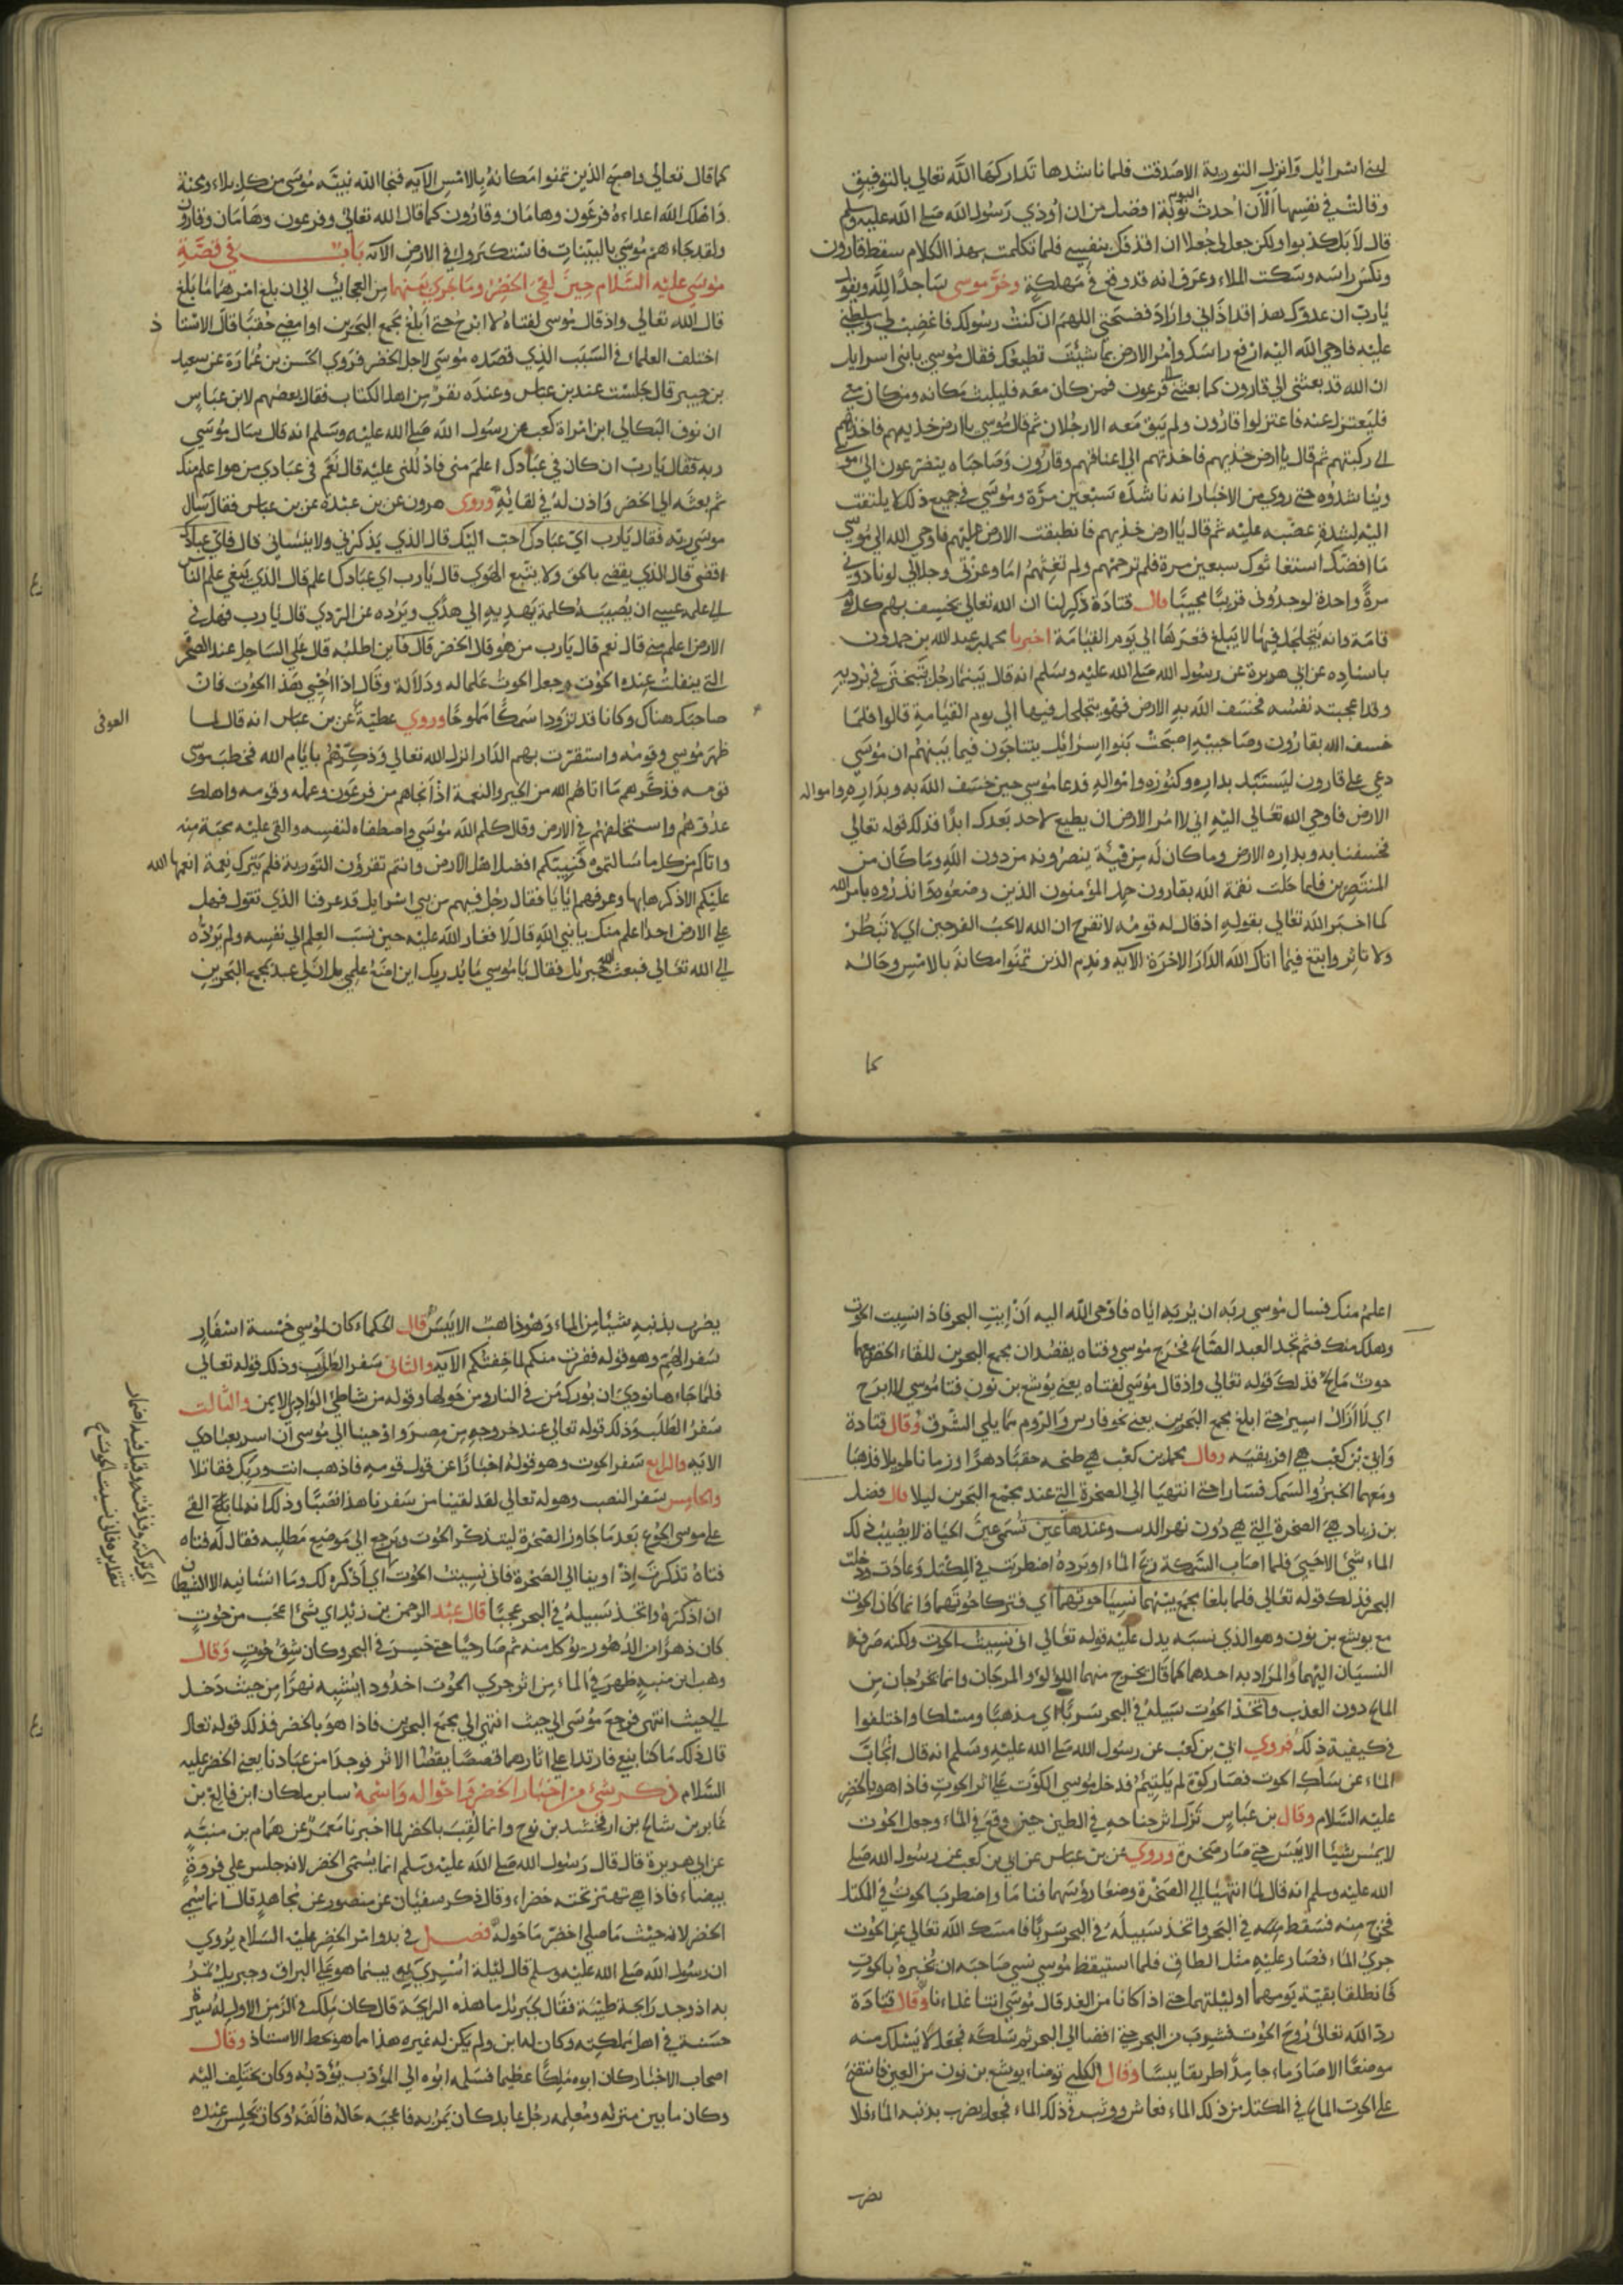 لبني اسرايل وانزل التورية الا صدقت فلما ناشدها تداركها الله تعالي بالتوفيق
وقالت في نفسها الآن احدث اليوم توبة افضل من ان اوذي رسول الله صلى الله عليه وسلم
قال لا بل كذبوا ولكن جعل لي جعلا ان اقذفك بنفسي فلما تكلمت بهذا الكلام سقط قارون
ونكس راسه وسكت الملاء وعرف انه قد وقع في مهلكة وخر موسى ساجدا لله ويقول
يا رب ان عدوك هذا قد اذاني واراد فضحتي اللهم ان كنت رسولك فاغضب لي وسلطني
عليه فاوحي الله اليه ارفع راسك وأمر الارض بما شئت تطيعك فقال موسي يا بني اسرايل
ان الله قد بعثني الي قارون كما بعثني الي فرعون فمن كان معه فليلبث مكانه ومن كان معي
فليعتزل عنه فاعتزلوا قارون ولم يبق معه الا رجلان ثم قال موسي يا ارض خذيهم فاخذتهم
الي ركبتهم ثم قال يا ارض خذيهم فاخذتهم الي اعناقهم وقارون وصاحباه يتضرعون الي موسي
ويناشدوه حتي روي من الاخبار انه ناشده سبعين مرة وموسي في جميع ذلك لا يلتفت
اليه لشدة غضبه عليه ثم قال يا ارض خذيهم فانطبقت الارض عليهم فاوحي الله الي موسي
ما افضك استغاثوك سبعين مرة فلم ترحمهم ولم تغثهم اما وعزتي وجلالي لو نادوني
مرة واحدة لوجدوني قريبا مجيبا قال قتادة ذكر لنا ان الله تعالي يخسف بهم كل يوم
قامة وانه يتجلجل فيها لا يبلغ قعرها الي يوم القيامة اخبرنا محمد بن عبد الله بن حمدون
باسناده عن ابي هريرة عن رسول الله صلى الله عليه وسلم انه قال بينما رجل يتبختر في برديه
وقد اعجبته نفسه فخسف الله به الارض فهو يتجلجل فيها الي يوم القيامة قالوا فلما
خسف الله بقارون وصاحبيه اصبحت بنوا اسرايل يتناجون فيما بينهم ان موسي
دعي علي قارون ليستبد بداره وكنوزه وامواله فدعا موسي حين خسف الله به وبداره وامواله
الارض فاوحي الله تعالي اليه اني لا امر الارض ان يطيع لاحد بعدك ابدا فذلك قوله تعالي
فخسفنا به وبداره الارض وما كان له من فية ينصرونه من دون الله وما كان من
المنتصرين فلما حلت نقمة الله بقارون حمد المؤمنون الذين وضعوه وانذروه بامر الله
كما اخبر الله تعالي بقوله اذ قال له قومه لا تفرح ان الله لا يحب الفرحين اي لا تبطر
ولا تاثر وابتغ فيما اتاك الله الدار الاخرة الاية وندم الذين تمنوا مكانه بالامس وحاله
كما
كما قال تعالي واصبح الذين تمنوا مكانه بالامس الاية فنجا الله نبيه موسي من كل بلاء ومحنة
واهلك الله اعداءه فرعون وهامان وقارون كما قال الله تعالي وفرعون وهامان وقارون
ولقد جاءهم موسي بالبينات فاستكبروا في الارض الآية باب في قصة
موسي عليه السلام حين لقي الخضر وما جري بينهما من العجايب الي ان بلغ امرهما ما بلغ
قال الله تعالي واذ قال موسي لفتاه لا ابرح حتي ابلغ مجمع البحرين او امضي حقبا قال الاستاذ
اختلف العلما في السبب الذي قصده موسي لاجل الخضر فروي الحسن بن عمارة عن سعيد
بن جبير قال جلست عند بن عباس وعنده نفر من اهل الكتاب فقال بعضهم لابن عباس
ان نوف البكالي ابن امراة كعب عن رسول الله صلى الله عليه وسلم انه قال سال موسي
ربه فقال يا رب ان كان في عبادك اعلم مني فادللني عليه قال نعم في عبادي من هو اعلم منك
ثم بعثه الي الخضر واذن له في لقائه وروي هرون عن بن عبدة عن بن عباس فقال سال
موسي ربه فقال يا رب اي عبادك احب اليك قال الذي يذكرني ولا ينساني قال فاي عبادك
اقضي قال الذي يقضي بالحق ولا يتبع الهوي قال يا رب اي عبادك اعلم قال الذي يبتغي علم الناس
الي علمه عسي ان يصيبه كلمة يهديه الي هدي ويرده عن الردي قال يا رب فهل في
الارض اعلم مني قال نعم قال يا رب من هو قال الخضر قال فاين اطلبه قال علي الساحل عند الصخر
التي ينفلت عنده الحوت وجعل الحوت علما له ودلالة وقال اذا احيي هذا الحوت فان
صاحبك هناك وكانا قد تزودا سمكا مملوحا وروي عطية عن بن عباس انه قال لما
العوفي
ظهر موسي وقومه واستقرت بهم الدار انزل الله تعالي وذكرهم بايام الله فخطب موسي
قومه فذكرهم ما اتاهم الله من الخير والنعمة اذ أنجاهم من فرعون وعمله وقومه واهلك
عدوهم واستخلفهم في الارض وقال كلم الله موسي واصطفاه لنفسه والقي عليه محبة منه
واتاكم من كل ما سالتموه فنبيكم افضل اهل الارض وانتم تقرؤن التورية فلم يترك نعمة انعمها الله
عليكم الا ذكرها لها وعرفهم ايايا فقال رجل فيهم من بني اسرايل قد عرفنا الذي تقول فهل
علي الارض احدا علم منك يا نبي الله قال لا فغار الله عليه حين نسب العلم الي نفسه ولم يرده
الي الله تعالي فبعث الله جبريل فقال يا موسي ما يدريك اين اضع علمي بل ان لي عبد بمجمع البحرين
اعلم منك فسال موسي ربه ان يريه اياه فاوحي الله اليه أن ايت البحر فاذا نسيت الحوت
وهلك منك فثم تجد العبد الصالح فخرج موسي وفتاه يقصدان مجمع البحرين للقاء الخضر معهما
حوت مالح فذلك قوله تعالي واذ قال موسي لفتاه يعني يوشع بن نون فتا موسي لا ابرح
اي لا ازال اسير حتي ابلغ مجمع البحرين يعني نحو فارس والروم مما يلي الشرق وقال قتادة
وابي بن كعب هي افريقيه وقال محمد بن كعب هي طنجه حقبا دهرا او زمانا طويلا فذهبا
ومعهما الخبز والسمك فسارا حتي انتهيا الي الصخرة التي عند مجمع البحرين ليلا قال فضل
بن زياد هي الصخرة التي هي دون نهر الدب وعندها عين تسمي عين الحياة لا يصيب ذلك
الماء شئ الا حيي فلما اصاب السمكة ريح الماء وبرده اضطربت في المكتل وعادت ودخلت
البحر فذلك قوله تعالي فلما بلغا مجمع بينهما نسيا حوتهما اي فتركا حوتهما وانما كان الحوت
مع يوشع بن نون وهو الذي نسيه يدل عليه قوله تعالي اني نسيت الحوت ولكنه صرف
النسيان اليهما والمراد به احدهما كما قال يخرج منهما اللؤلؤ والمرجان وانما يخرجان من
المالح دون العذب واتخذ الحوت سبيله في البحر سربا اي مذهبا ومسلكا واختلفوا
في كيفية ذلك فروي ابي بن كعب عن رسول الله صلى الله عليه وسلم انه قال انجاب
الماء عن سلك الحوت فصار كوة لم يلتيم فدخل موسي الكوة علي اثر الحوت فاذا هو بالخضر
عليه السلام وقال بن عباس نزل اثر جناحه في الطين حين وقع في الماء وجعل الحوت
لا يمس شيئا الا يبس حتي صار صخرة وروي عن بن عباس عن ابي بن كعب عن رسول الله صلى
الله عليه وسلم انه قال لما انتهيا الي الصخرة وضعا رؤسهما فناما واضطرب الحوت في المكتل
فخرج منه فسقط منه في البحر واتخذ سبيله في البحر سربا فامسك الله تعالي عن الحوت
جري الماء فصار عليه مثل الطاق فلما استيقظ موسي نسي صاحبه ان يخبره بالحوت
فانطلقا بقية يومهما وليلتهما حتي اذا كانا من الغد قال موسي اتنا غداءنا وقال قتادة
رد الله تعالي روح الحوت فشرب من البحر حتي افضا الي البحر ثم سلكه فجعل لا يسلك منه
موضعا الا صار ماء جامدا طريقا يبسا وقال الكلبي توضاء يوشع بن نون من العين فانتضح
علي الحوت المالح في المكتل من ذلك الماء فعاش ووثب في ذلك الماء فجعل يضرب بذنبه الماء فلا
يضرب
يضرب بذنبه شيئا من الماء وهو ذاهب الا يبس قال الحكماء كان لموسي خمسة اسفار
سفر الهم وهو قوله ففرت منكم لما خفتكم الآية والثاني سفر الطلب وذلك قوله تعالي
فلما جاءها نودي ان بورك من في النار ومن حولها وقوله من شاطئ الواد الايمن والثالث
سفر الطلب وذلك قوله تعالي عند خروجه من مصر واوحينا الي موسي ان اسر بعبادي
الاية والرابع سفر الحوت وهو قوله اخبارا عن قول قومه فاذهب انت وربك فقاتلا
والخامس سفر النصب وهو له تعالي لقد لقينا من سفرنا هذا نصبا وذلك انه لما بلغ القي
علي موسي الجوع بعد ما جاوز الصخرة ليتذكر الحوت ويرجع الي موضع مطلبه فقال له فتاه
فتاه تذكرت اذ اوينا الي الصخرة فاني نسيت الحوت اي أذكره لك وما انسانيه الا الشيطان
اي تركه وفقدته وقيل فيه اضمار
تقديره فاني نسيت الحوت
ان اذكره واتخذ سبيله في البحر عجبا قال عبد الرحمن بن زيد اي شئ اعجب من حوت
كان ذهرا من الدهور يوكل منه ثم صار حيا حتي حيس في البحر وكان شق حوت وقال
وهب ابن منبه ظهر في الماء من اثر جري الحوت اخدود ايشبه نهرا من حيث دخل
الي حيث انتهي فرجع موسي الي حيث انتهي الي مجمع البحرين فاذا هو بالخضر فذلك قوله تعالي
قال ذلك ما كنا نبغي فارتدا علي اثارهما قصصا يقصا الاثر فوجدا من عبادنا يعني الخضر عليه
السلام ذكر شئ من اخبار الخضر واحواله واسمه سابر ملكان ابن فالغ بن
غابر بن شالح بن ارفخشد بن نوح وانما لقب بالخضر لما اخبرنا معمر عن همام بن منبه
عن ابي هريرة قال قال رسول الله صلى الله عليه وسلم انما يسمي الخضر لانه جلس علي فروة
بيضاء فاذا هي تهتز تحته خضراء وقال ذكر سفيان عن منصور عن مجاهد قال انما سمي
الخضر لانه حيث ما صلي اخضر ما حوله فصل في بدو امر الخضر عليه السلام يروي
ان رسول الله صلى الله عليه وسلم قال ليلة اسري به بينما هو علي البراق وجبريل يمر
به اذ وجد رايحة طيبة فقال لجبريل ما هذه الرايحة قال كان ملك في الزمن الاول له سيرة
حسنة في اهل مملكته وكان له ابن ولم يكن له غيره هذا ما هو بخط الاستاذ وقال
اصحاب الاخبار كان ابوه ملكا عظيما فسلمه ابوه الي المؤدب يؤدبه وكان يختلف اليه
وكان ما بين منزله ومعلمه رجل عابد كان يمر به فاعجبه حاله فالفه وكان يجلس عنده